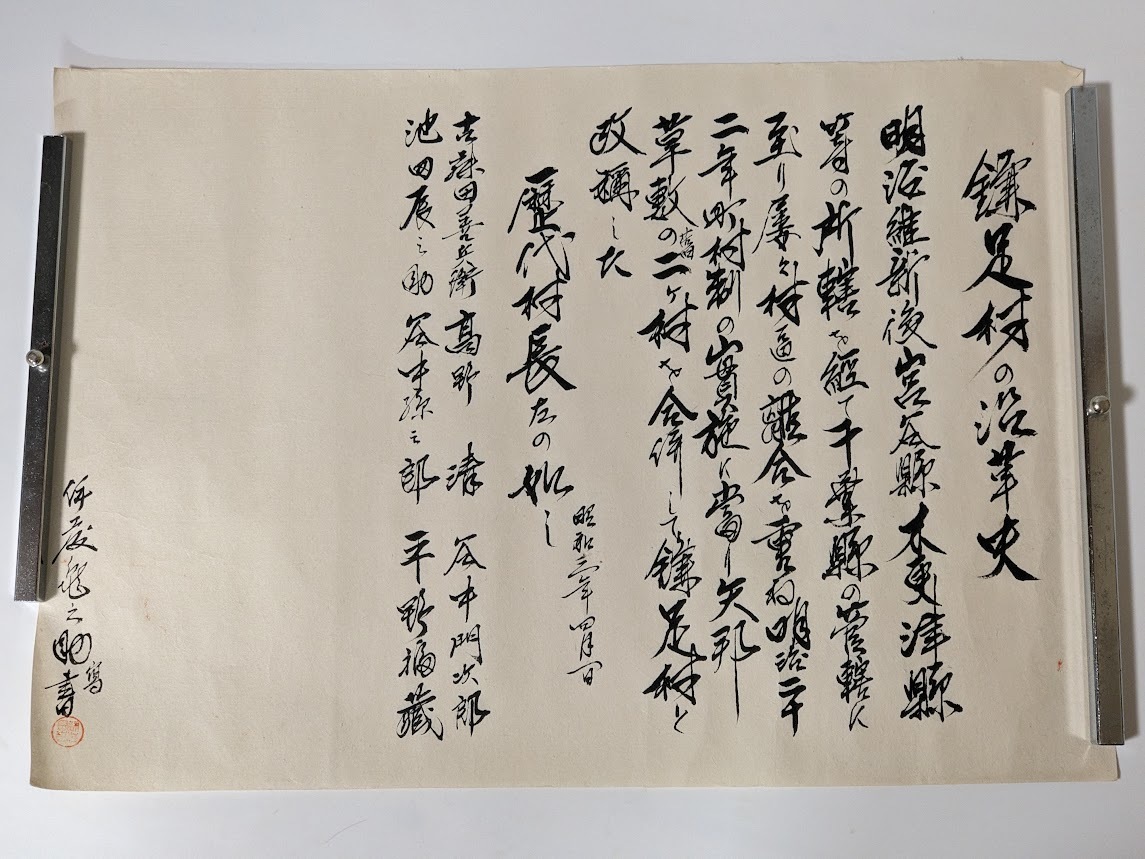 鎌足村の沿革史
明治維新後宮谷縣木更津縣
等の所轄を經て千葉縣の管轄に
至り屡々村區の離合を重ね明治二十
二年町村制の實施に當り矢那
草敷の舊二ヶ村を合併して鎌足村と
改稱した
昭和三年四月一日
歴代村長左の如し
古藤田善兵衛 高野 清 谷中門次郎
池田辰之助 谷中孫三郎 平野福藏
龍之助書
寫